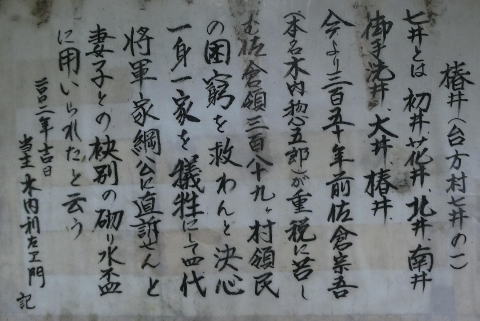 椿井(台方村七井の一)
七井とは 初井、花井、北井、南井
御手洗井、大井、椿井、
今より三百五十年前佐倉宗吾
(本名木内惣五郎)が重税に苦し
む佐倉領三百八十九ヶ村領民
の困窮を救わんと決心
一身一家を犠牲にして四代
将軍家綱公に直訴せんと
妻子との袂別の砌り水盃
に用いられたと云う
二〇〇二年吉日
当主 木内利左エ門 記